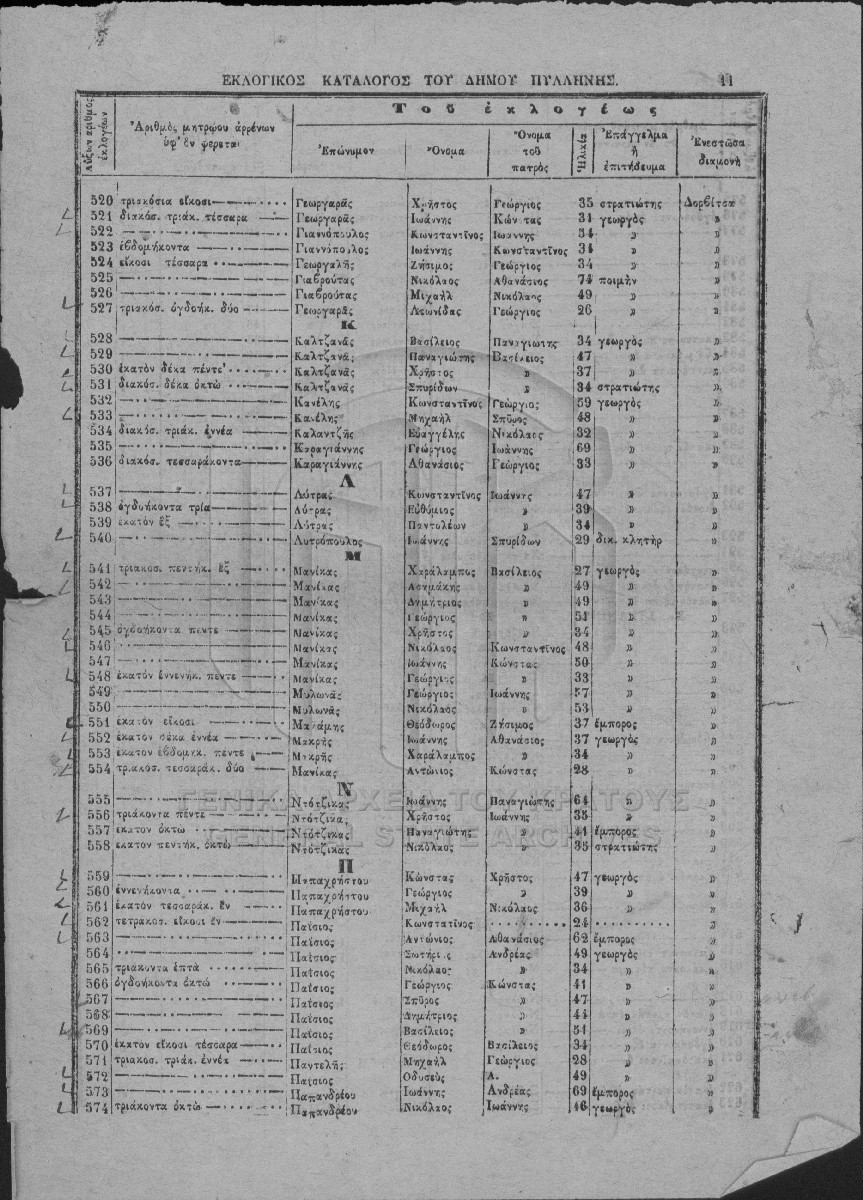 ΕΚΛΟΓΙΚΟΣ ΚΑΤΑΛΟΓΟΣ ΤΟΥ ΔΗΜΟΥ ΠΥΛΛΗΝΗΣ. 11
Αὔξων ἀριθμὸς ἐκλογέων
Ἀριθμὸς μητρῴου ἀρρένων ὑφ' ὃν φέρεται
Τοῦ ἐκλογέως
Ἐπώνυμον Ὄνομα Ὄνομα τοῦ πατρὸς Ἡλικία Ἐπάγγελμα ἢ ἐπιτήδευμα Ἐνεστῶσα διαμονὴ
520 τριακόσια εἴκοσι Γεωργαρᾶς Χρῆστος Γεώργιος 35 στρατιώτης Δορβίτσα
521 διακόσ. τριάκ. τέσσαρα Γεωργαρᾶς Ἰωάννης Κώντας 31 γεωργὸς »
522 Γιαννόπουλος Κωνσταντῖνος Ἰωάννης 34 » »
523 ἑβδομήκοντα Γιαννόπουλος Ἰωάννης Κωνσταντῖνος 34 » »
524 εἴκοσι τέσσαρα Γεωργαλῆς Ζήσιμος Γεώργιος 34 » »
525 Γιαβρούτας Νικόλαος Ἀθανάσιος 74 ποιμὴν »
526 Γιαβρούτας Μιχαὴλ Νικόλαος 49 » »
527 τριακόσ. ὀγδοήκ. δύο Γεωργαρᾶς Λεωνίδας Γεώργιος 26 » »
Κ
528 Καλτζανᾶς Βασίλειος Παναγιώτης 34 γεωργὸς »
529 Καλτζανᾶς Παναγιώτης Βασίλειος 47 » »
530 ἑκατὸν δέκα πέντε Καλτζανᾶς Χρῆστος » 37 » »
531 διακόσ. δέκα ὀκτὼ Καλτζανᾶς Σπυρίδων » 34 στρατιώτης »
532 Κανέλης Κωνσταντῖνος Γεώργιος 59 γεωργὸς »
533 Κανέλης Μηχαὴλ Σπῦρος 48 » »
534 διακόσ. τριάκ. ἐννέα Καλαντζῆς Εὐαγγέλης Νικόλαος 32 » »
535 Καραγιάννης Γεώργιος Ἰωάννης 69 » »
536 διακόσ. τεσσαράκοντα Καραγιάννης Ἀθανάσιος Γεώργιος 33 » »
Λ
537 Λύτρας Κωνσταντῖνος Ἰωάννης 47 » »
538 ὀγδοήκοντα τρία Λύτρας Εὐθύμιος » 39 » »
539 ἑκατὸν ἓξ Λύτρας Παντολέων » 34 » »
540 Λυτρόπουλος Ἰωάννης Σπυρίδων 29 δικ. κλητὴρ »
Μ
541 τριακοσ. πεντήκ. ἓξ Μανίκας Χαράλαμπος Βασίλειος 27 γεωργὸς »
542 Μανίκας Ἀσημάκης » 49 » »
543 Μανίκας Δημήτριος » 49 » »
544 Μανίκας Γεώργιος » 51 » »
545 ὀγδοήκοντα πέντε Μανίκας Χρῆστος » 34 » »
546 Μανίκας Νικόλαος Κωνσταντῖνος 48 » »
547 Μανίκας Ἰωάννης Κώνστας 50 » »
548 ἑκατὸν ἐννενήκ. πέντε Μανίκας Γεώργιος » 33 » »
549 Μυλωνᾶς Γεώργιος Ἰωάννης 57 » »
550 Μυλωνᾶς Νικόλαος » 53 » »
551 ἑκατὸν εἴκοσι Θεόδωρος Ζήσιμος 37 ἔμπορος »
552 ἑκατὸν δέκα ἐννέα Μακρῆς Ἰωάννης Ἀθανάσιος 37 γεωργὸς »
553 ἑκατὸν ἑβδομήκ. πέντε Μακρῆς Χαράλαμπος » 34 » »
554 τριακοσ. τεσσαράκ. δύο Μανίκας Ἀντώνιος Κώνστας 28 » »
Ν
555 Ντότζικας Ἰωάννης Παναγιώτης 64 » »
556 τριάκοντα πέντε Ντότζικας Χρῆστος Ἰωάννης 35 » »
557 ἑκατὸν ὀκτὼ Ντότζικας Παναγιώτης » 41 ἔμπορος »
558 ἑκατὸν πεντήκ. ὀκτὼ Ντότζικας Νικόλαος » 35 στρατιώτης »
Π
559 Παπαχρήστου Κώνστας Χρῆστος 47 γεωργὸς »
560 ἐννενήκοντα Παπαχρήστου Γεώργιος » 39 » »
561 ἑκατὸν τεσσαράκ. ἓν Παπαχρήστου Μιχαὴλ Νικόλαος 36 » »
562 τετρακοσ. εἴκοσι ἓν Παΐσιος Κωνστατῖνος 24 »
563 Παΐσιος Ἀντώνιος Ἀθανάσιος 62 ἔμπορος »
564 Παΐσιος Σωτήριος Ἀνδρέας 49 γεωργὸς »
565 τριάκοντα ἑπτὰ Παΐσιος Νικόλαος » 34 » »
566 ὀγδοήκοντα ὀκτὼ Παΐσιος Γεώργιος Κώνστας 41 » »
567 Παΐσιος Σπῦρος » 47 » »
568 Παΐσιος Δημήτριος » 44 » »
569 Παΐσιος Βασίλειος » 51 » »
570 ἑκατὸν εἴκοσι τέσσαρα Παΐσιος Θεόδωρος Βασίλειος 34 » »
571 τριακοσ. τριάκ. ἐννέα Παντελῆς Μηχαὴλ Γεώργιος 28 » »
572 Παΐσιος Ὀδυσεὺς Α. 49 » »
573 Παπανδρέου Ἰωάννης Ἀνδρέας 69 ἔμπορος »
574 τριάκοντα ὀκτὼ Παπανδρέου Νικόλαος Ἰωάννης 46 γεωργὸς »
ΓΕΝΙΚΑ ΑΡΧΕΙΑ ΤΟΥ ΚΡΑΤΟΥΣ
GENERAL STATE ARCHIVES